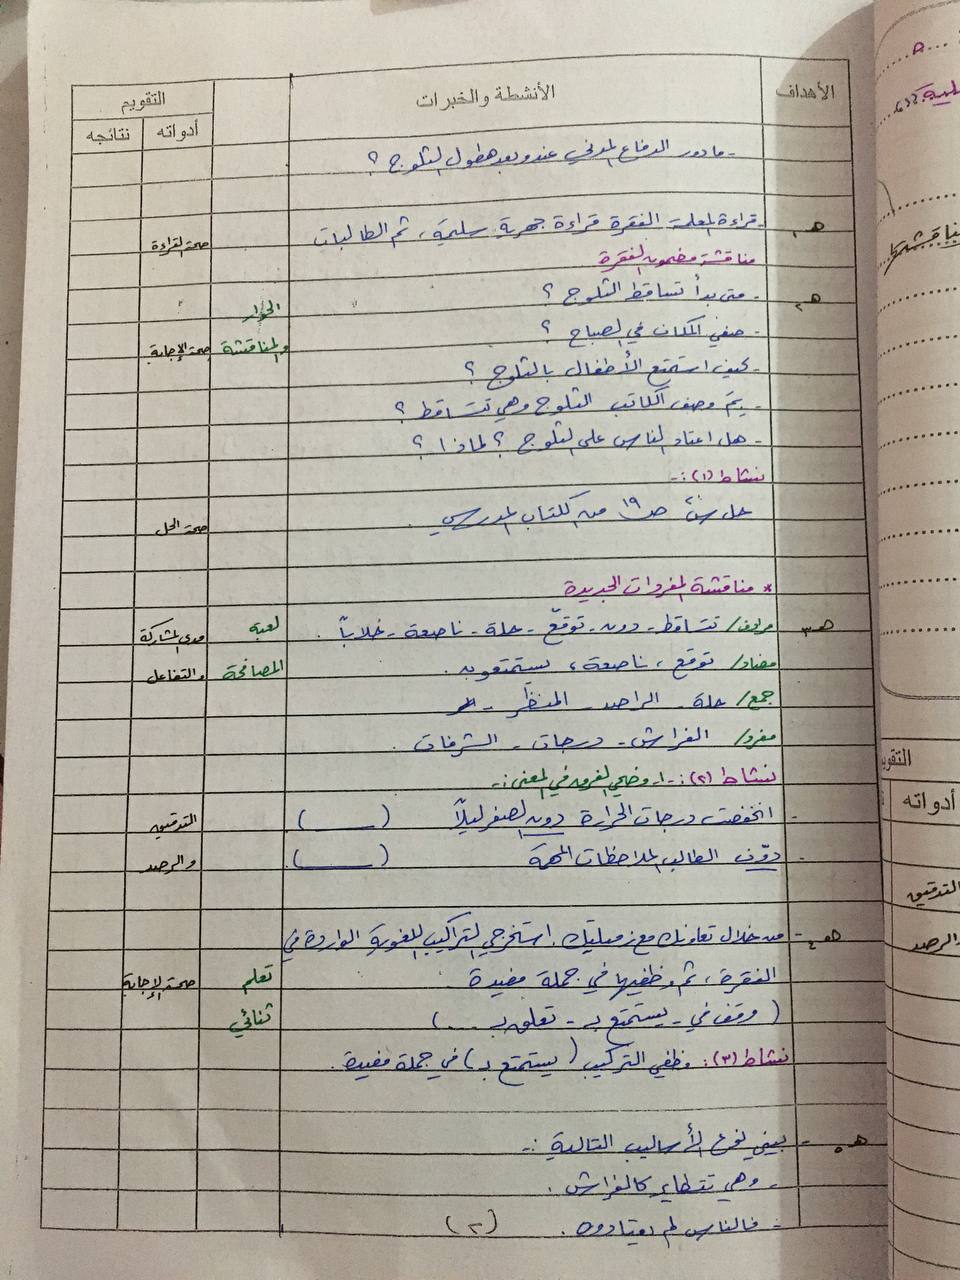 الأهداف الأنشطة والخبرات التقويم
أدواته نتائجه
- ما دور الدفاع المدني عند وبعد هطول الثلوج ؟
هـ١ - قراءة المعلمة الفقرة قراءة جهرية سليمة ، ثم الطالبات صحة القراءة
مناقشة مضمون الفقرة
هـ٢ - متى بدأ تساقط الثلوج ؟ الحوار
- صفي المكان في الصباح ؟ والمناقشة صحة الإجابة
- كيف استمتع الأطفال بالثلوج ؟
- بمَ وصف الكاتب الثلوج وهي تتساقط ؟
- هل اعتاد الناس على الثلوج ؟ لماذا ؟
نشاط (١) :-
حل ص ١٩ من الكتاب المدرسي . صحة الحل
* مناقشة المفردات الجديدة
هـ٣ مرادف/ تتساقط - دون - توقّع - حلة - ناصعة - خلاباً . لعبة مدى المشاركة
مضاد/ توقع ، ناصعة ، يستمتعون . المصافحة والتفاعل
جمع/ حلة - الراصد - المنظر -
مفرد/ الفراش - درجات - الشرفات .
نشاط (٢) :- ١- وضحي الفرق في المعنى :-
- انخفضت درجات الحرارة دون الصفر ليلاً ( ) التدقيق
- دوّن الطالب الملاحظات المهمة ( ) والرصد
هـ٤ - من خلال تعاونك مع زميلتك استخرجي التراكيب اللغوية الواردة في
الفقرة ، ثم وظفيها في جملة مفيدة . تعلم صحة الإجابة
( وقف في - يستمتع بـ - تعلق بـ .... ) ثنائي
نشاط (٣) : وظفي التركيب ( يستمتع بـ ) في جملة مفيدة .
هـ٥ - بيني نوع الأساليب التالية :-
- وهي تتطاير كالفراش .
- فالناس لم يعتادوه . (٢)
التقويم
أدواته
التدقيق
والرصد